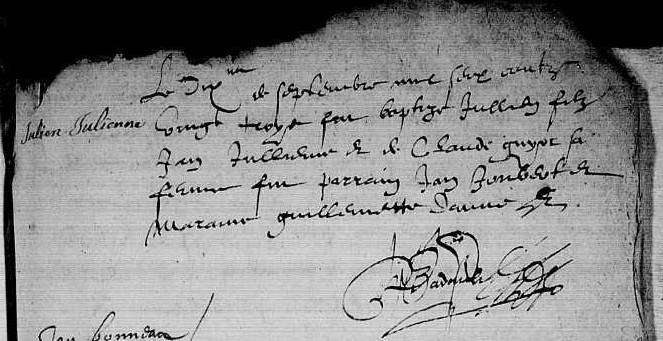 Le dix me de septembre mil seix centz
Julien Julienne
vingt troys fut baptize Jullien filz
Jan Jullienne et de Claude guyot sa
femme fut parrain Jan Joubert et
Maraine guillemette
Jan bonneau